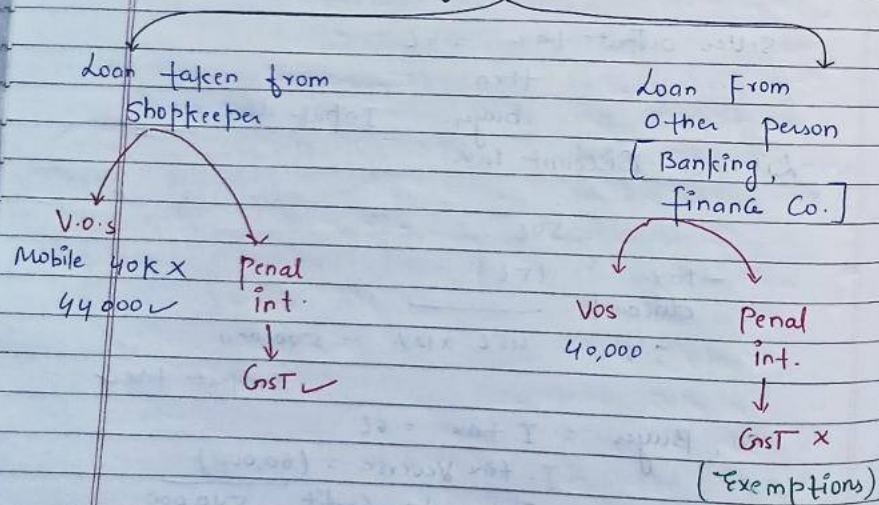 Loan taken from
Shopkeeper
V.O.S
Mobile 40K x
44000 ✓
Penal
int.
GST ✓
Loan From
Other person
[Banking,
finance Co.]
VOS
40,000
Penal
int.
GST x
(Exemptions)